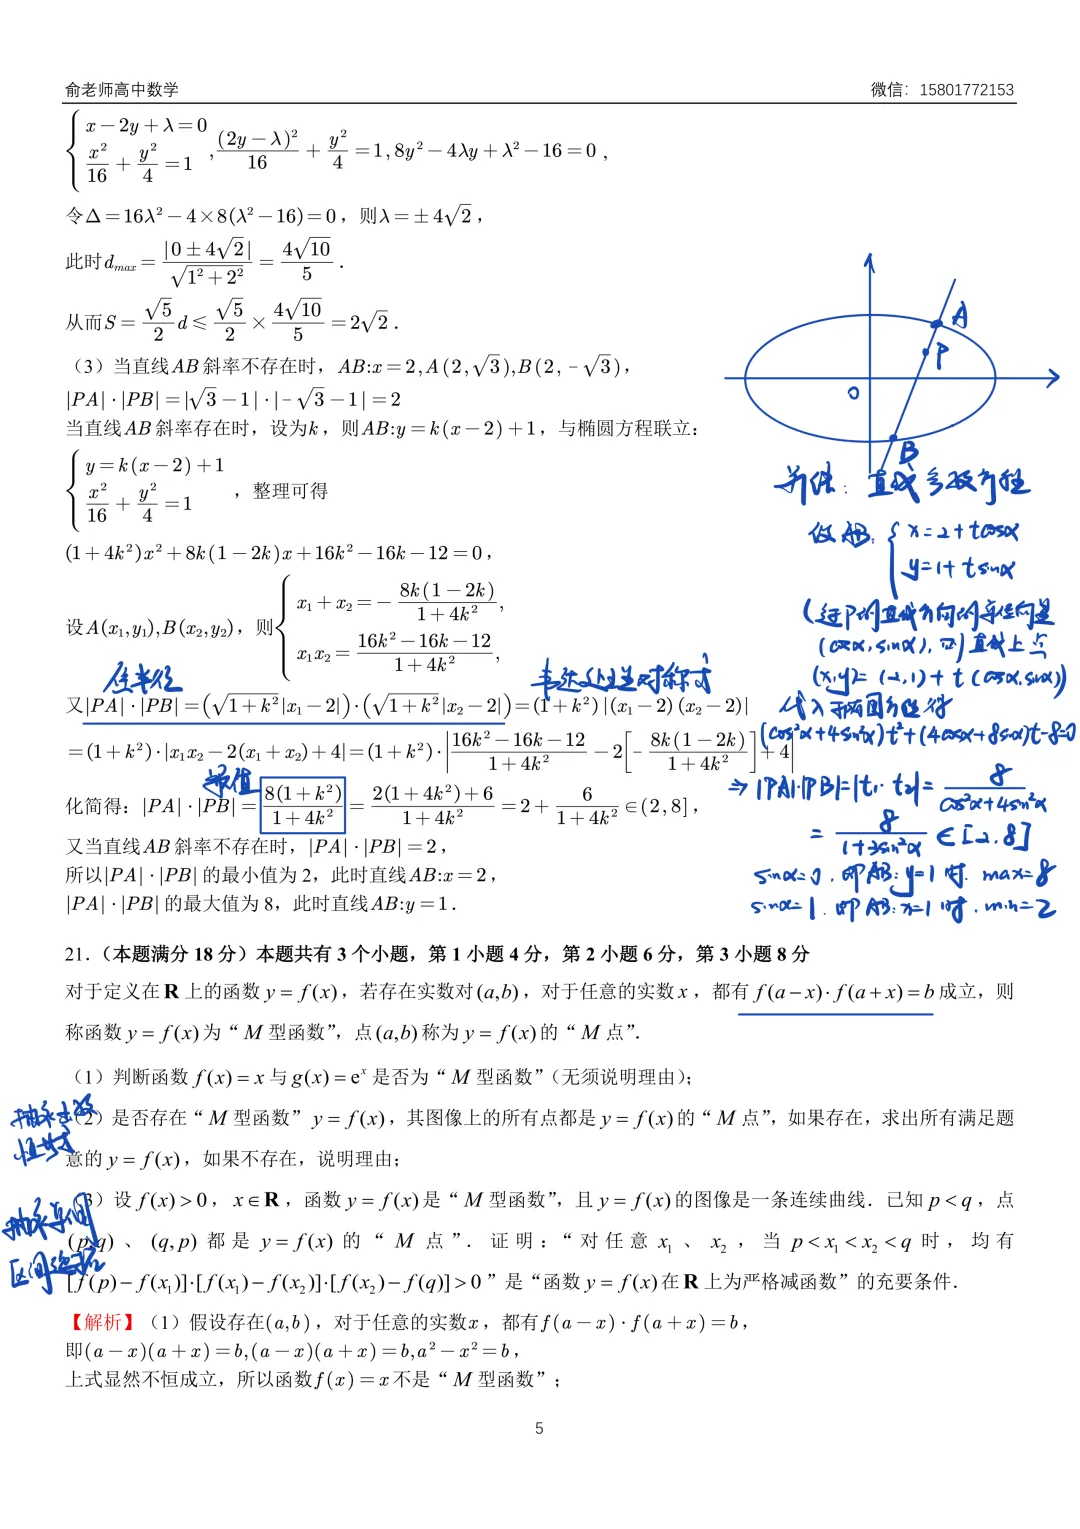 俞老师高中数学 微信：15801772153
{ x－2y＋λ＝0, x²/16＋y²/4＝1 , (2y－λ)²/16＋y²/4＝1, 8y²－4λy＋λ²－16＝0，
令Δ＝16λ²－4×8(λ²－16)＝0，则λ＝±4√2，
此时d_max＝|0±4√2|/√(1²＋2²)＝4√10/5．
从而S＝√5/2 d≤√5/2×4√10/5＝2√2．
（3）当直线AB斜率不存在时，AB:x＝2,A(2,√3),B(2,－√3)，
|PA|·|PB|＝|√3－1|·|－√3－1|＝2
当直线AB斜率存在时，设为k，则AB:y＝k(x－2)＋1，与椭圆方程联立：
{ y＝k(x－2)＋1, x²/16＋y²/4＝1 ，整理可得
(1＋4k²)x²＋8k(1－2k)x＋16k²－16k－12＝0，
设A(x₁,y₁),B(x₂,y₂)，则{ x₁＋x₂＝－8k(1－2k)/(1＋4k²), x₁x₂＝(16k²－16k－12)/(1＋4k²),
韦达处理对称式
又|PA|·|PB|＝(√(1＋k²)|x₁－2|)·(√(1＋k²)|x₂－2|)＝(1＋k²)|(x₁－2)(x₂－2)|
＝(1＋k²)·|x₁x₂－2(x₁＋x₂)＋4|＝(1＋k²)·|(16k²－16k－12)/(1＋4k²)－2[－8k(1－2k)/(1＋4k²)]＋4|
最值
化简得：|PA|·|PB|＝8(1＋k²)/(1＋4k²)＝(2(1＋4k²)＋6)/(1＋4k²)＝2＋6/(1＋4k²)∈(2,8]，
又当直线AB斜率不存在时，|PA|·|PB|＝2，
所以|PA|·|PB|的最小值为 2，此时直线AB:x＝2，
|PA|·|PB|的最大值为 8，此时直线AB:y＝1．
A
P
O
B
直线参数方程
设AB: { x=2+tcosα
y=1+tsinα
(过P的直线方向的单位向量
(cosα,sinα), 即直线上点
(x,y)=(2,1)+t(cosα,sinα))
代入椭圆方程得
(cos²α+4sin²α)t²+(4cosα+8sinα)t-8=0
⇒|PA|·|PB|=|t₁·t₂|= 8/(cos²α+4sin²α)
= 8/(1+3sin²α) ∈[2,8]
sinα=0, 即AB:y=1时. max=8
sinα=1, 即AB:x=1时. min=2
21．（本题满分 18 分）本题共有 3 个小题，第 1 小题 4 分，第 2 小题 6 分，第 3 小题 8 分
对于定义在 R 上的函数 y＝f(x)，若存在实数对(a,b)，对于任意的实数 x，都有 f(a−x)·f(a+x)＝b 成立，则
称函数 y＝f(x)为“M 型函数”，点(a,b)称为 y＝f(x)的“M 点”．
（1）判断函数 f(x)＝x 与 g(x)＝eˣ 是否为“M 型函数”（无须说明理由）；
抽象函数
恒成立
（2）是否存在“M 型函数” y＝f(x)，其图像上的所有点都是 y＝f(x)的“M 点”，如果存在，求出所有满足题
意的 y＝f(x)，如果不存在，说明理由；
（3）设 f(x)>0，x∈R，函数 y＝f(x)是“M 型函数”，且 y＝f(x)的图像是一条连续曲线．已知 p<q，点
(p,q)、(q,p)都是 y＝f(x)的“M 点”．证明：“对任意 x₁、x₂，当 p<x₁<x₂<q 时，均有
[f(p)−f(x₁)]·[f(x₁)−f(x₂)]·[f(x₂)−f(q)]>0”是“函数 y＝f(x)在 R 上为严格减函数”的充要条件．
【解析】（1）假设存在(a,b)，对于任意的实数x，都有f(a－x)·f(a＋x)＝b，
即(a－x)(a＋x)＝b,(a－x)(a＋x)＝b,a²－x²＝b，
上式显然不恒成立，所以函数f(x)＝x不是“M 型函数”；
5